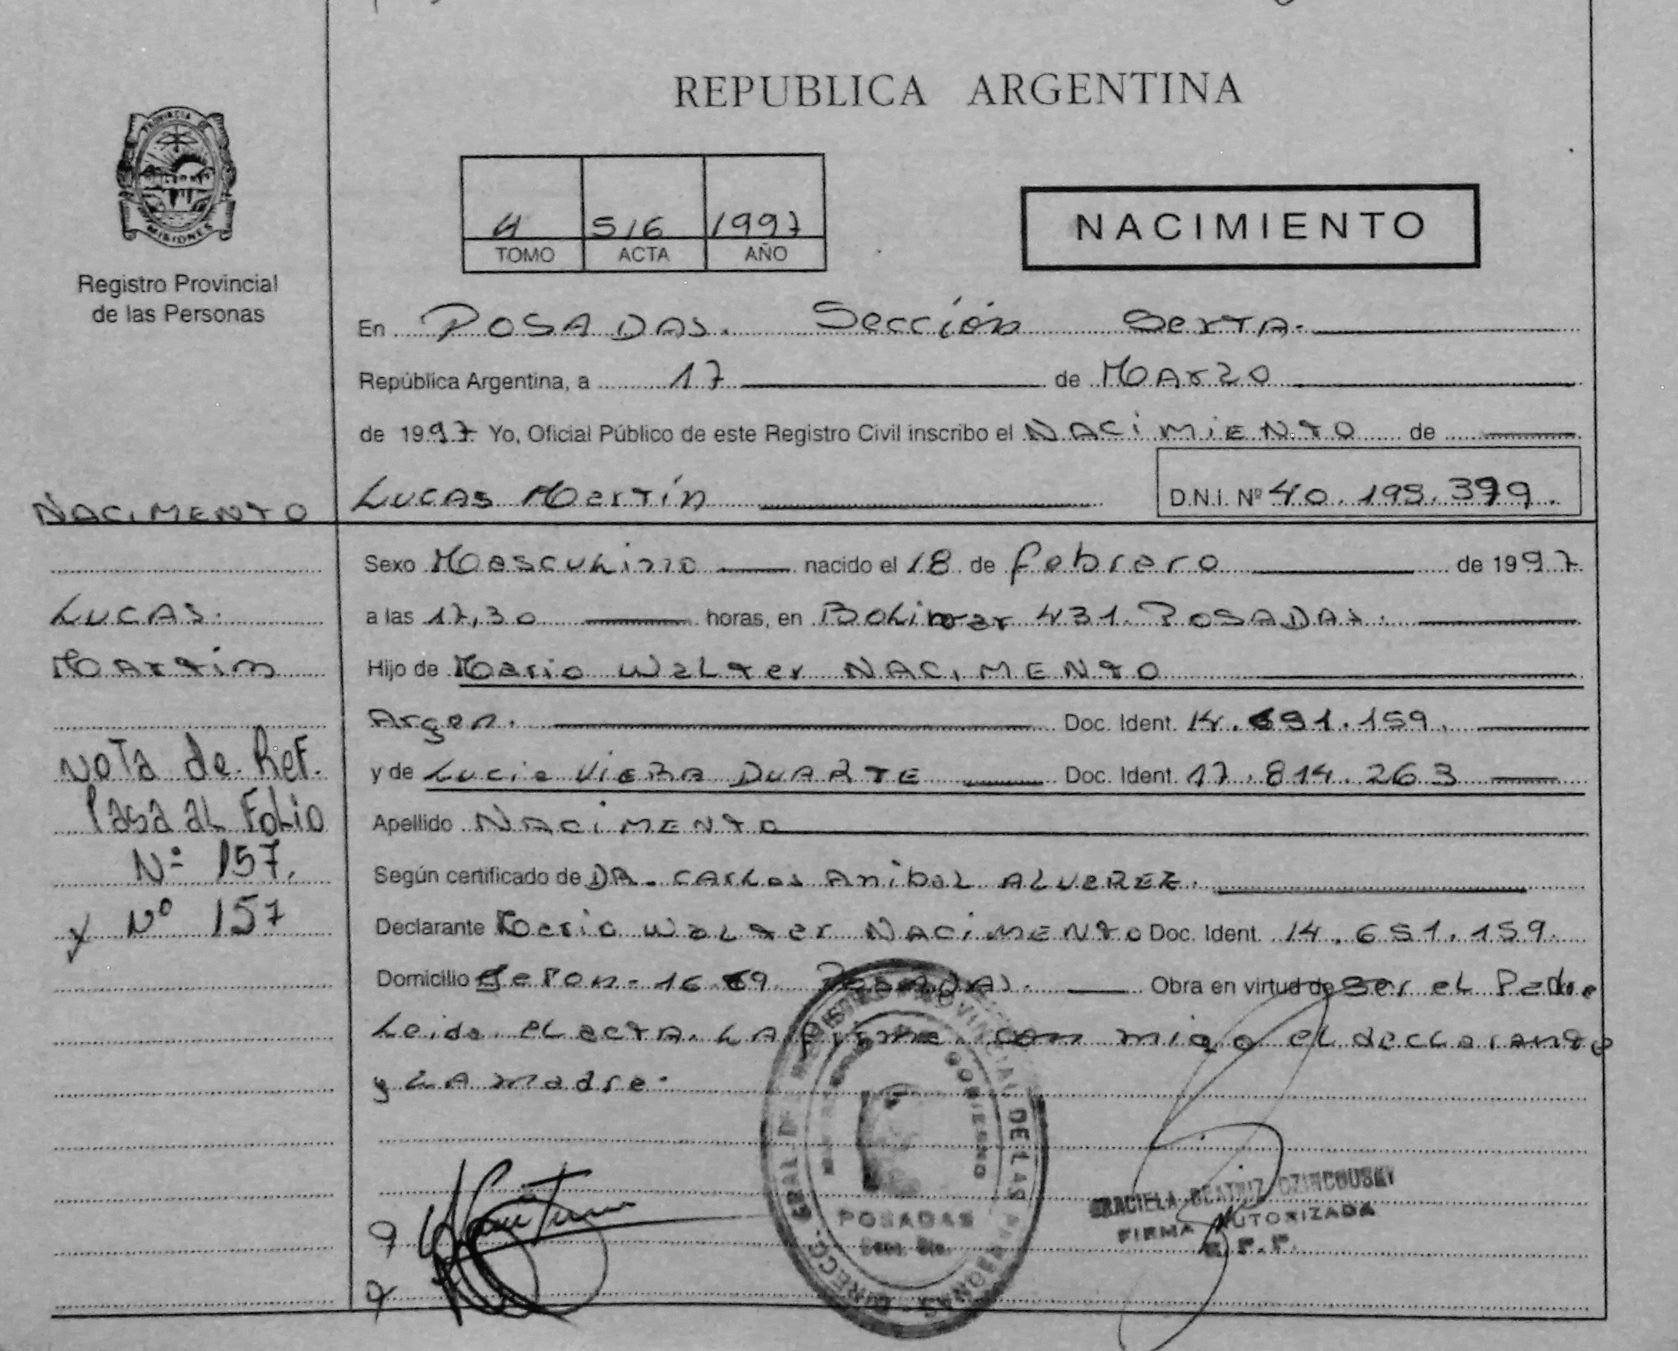 REPUBLICA ARGENTINA
PROVINCIA DE
MISIONES
Registro Provincial
de las Personas
4 516 1997
TOMO ACTA AÑO
NACIMIENTO
En POSADAS. Sección Sexta.
República Argentina, a 17 de Marzo
de 1997 Yo, Oficial Público de este Registro Civil inscribo el NACIMIENTO de
LUCAS Martín
D.N.I. Nº 40.195.399.
NACIMENTO
LUCAS.
Martín
Nota de Ref.
Pasa al Folio
Nº 157.
y Nº 157
Sexo Masculino nacido el 18 de febrero de 1997
a las 17,30 horas, en Bolivar 431. POSADAS.
Hijo de Mario Walter NACIMENTO
Argen. Doc. Ident. 14.691.159.
y de Lucia VIERA DUARTE Doc. Ident. 17.814.263
Apellido NACIMENTO
Según certificado de DR. Carlos Anibal ALVEREZ.
Declarante Mario Walter NACIMENTO Doc. Ident. 14.691.159.
Domicilio POSADAS. Obra en virtud de ser el Padre
Leida el acta. LA firma conmigo el declarante
y LA madre.
DIRECC. GRAL. REGISTRO PROVINCIAL DE LAS PERSONAS
GOBIERNO
POSADAS
GRACIELA BEATRIZ
FIRMA AUTORIZADA
R.P.P.